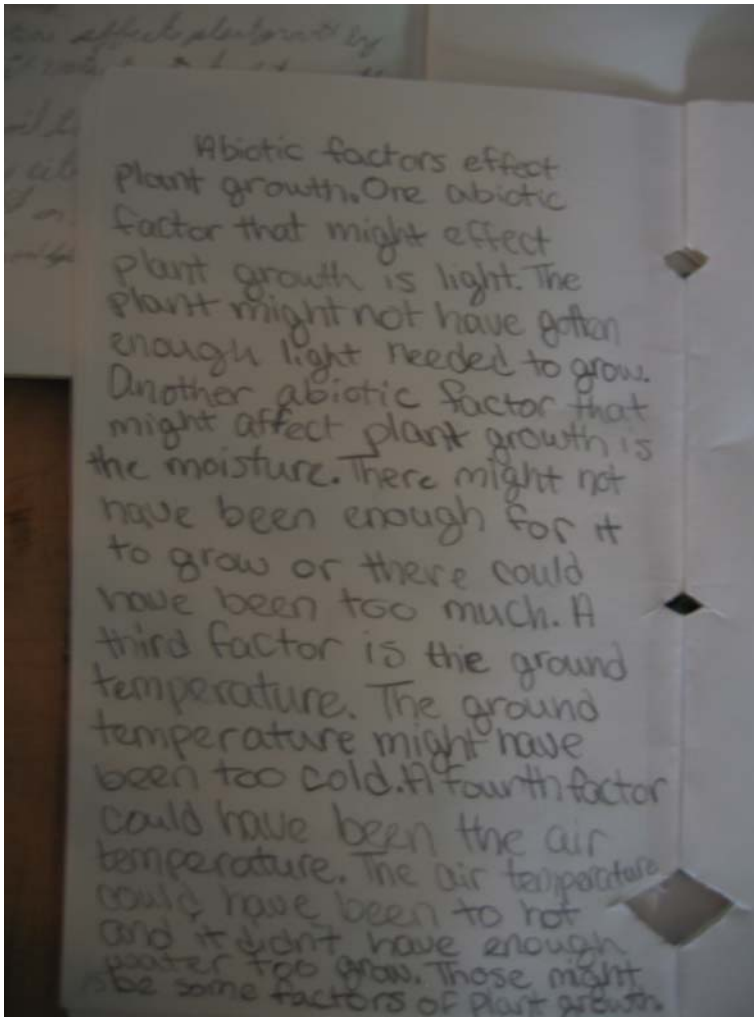 Abiotic factors effect
plant growth. One abiotic
factor that might effect
plant growth is light. The
plant might not have gotten
enough light needed to grow.
Another abiotic factor that
might affect plant growth is
the moisture. There might not
have been enough for it
to grow or there could
have been too much. A
third factor is the ground
temperature. The ground
temperature might have
been too cold. A fourth factor
could have been the air
temperature. The air temperature
could have been to hot
and it didn't have enough
water too grow. Those might
be some factors of plant growth.